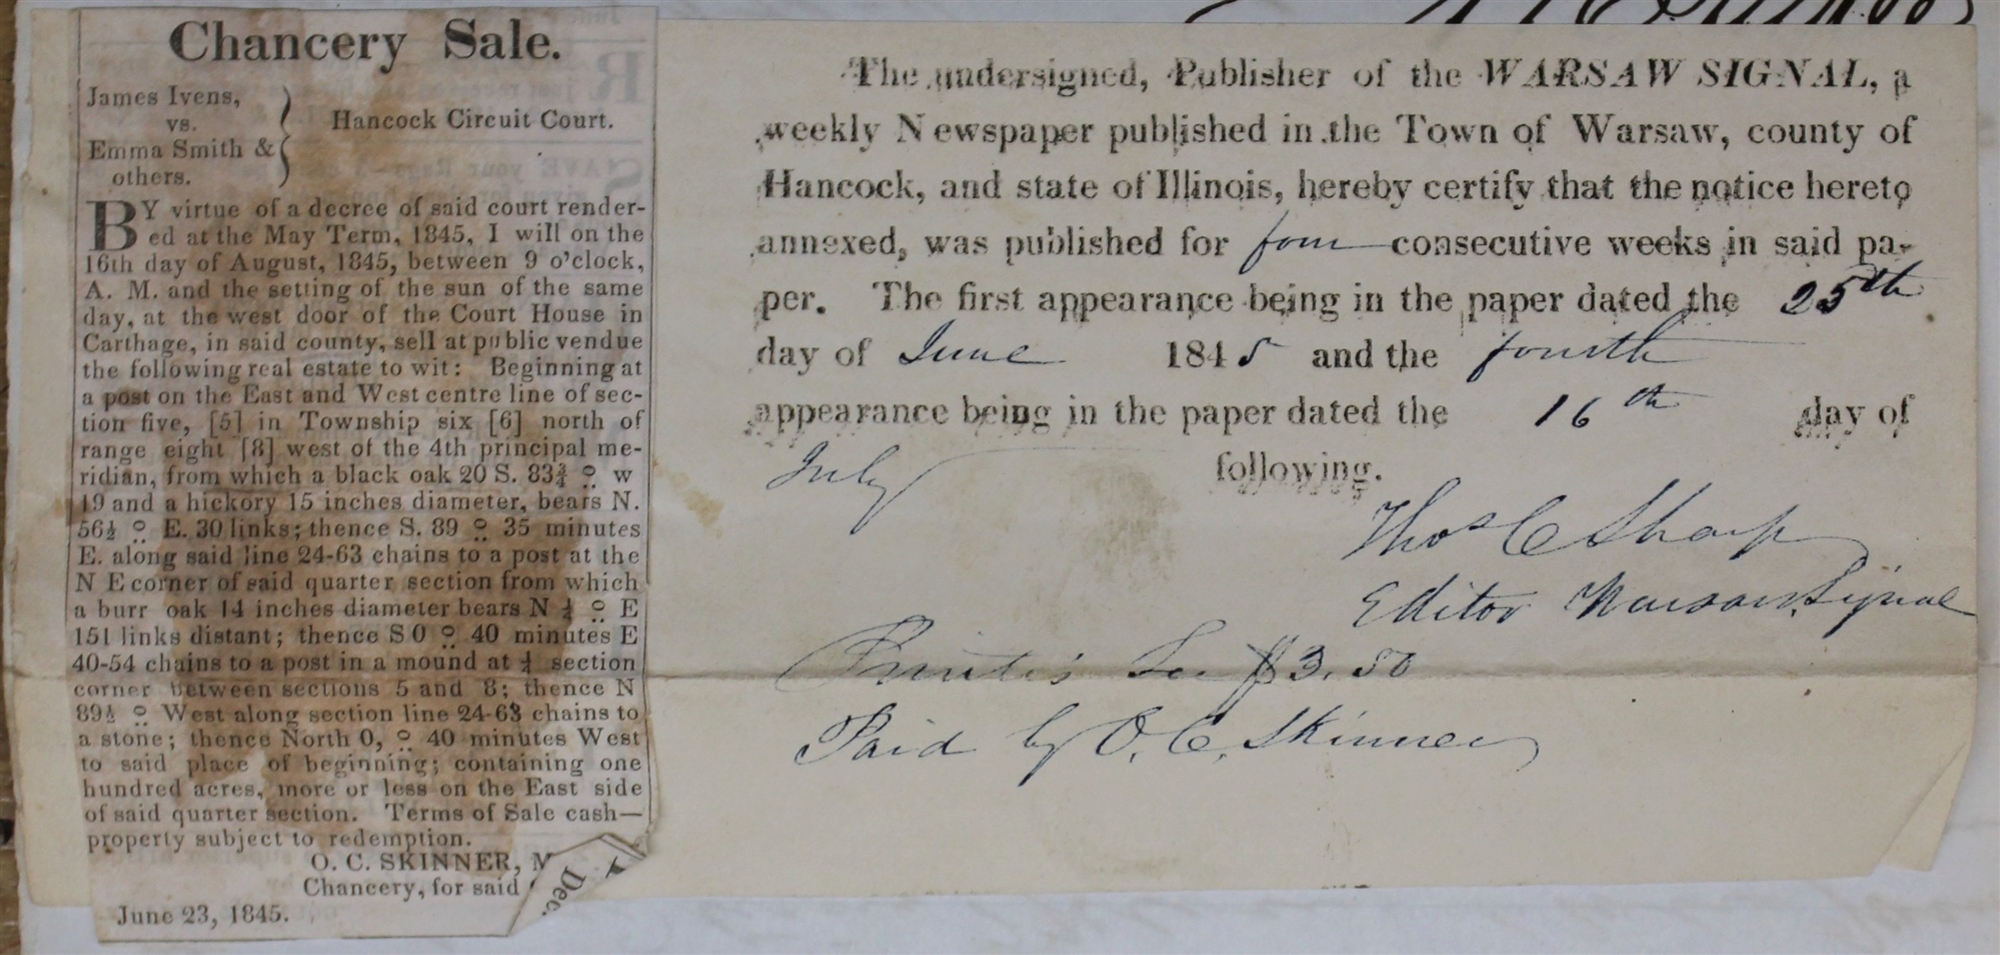 Chancery Sale.
James Ivens,
vs.
Emma Smith &
others.
Hancock Circuit Court.
BY virtue of a decree of said court render-
ed at the May Term, 1845, I will on the
16th day of August, 1845, between 9 o'clock,
A. M. and the setting of the sun of the same
day, at the west door of the Court House in
Carthage, in said county, sell at public vendue
the following real estate to wit: Beginning at
a post on the East and West centre line of sec-
tion five, [5] in Township six [6] north of
range eight [8] west of the 4th principal me-
ridian, from which a black oak 20 S. 83¾ º w
19 and a hickory 15 inches diameter, bears N.
56½ º E. 30 links; thence S. 89 º 35 minutes
E. along said line 24-63 chains to a post at the
N E corner of said quarter section from which
a burr oak 14 inches diameter bears N º E
151 links distant; thence S 0 º 40 minutes E
40-54 chains to a post in a mound at ¼ section
corner between sections 5 and 8; thence N
89½ º West along section line 24-63 chains to
a stone; thence North 0, º 40 minutes West
to said place of beginning; containing one
hundred acres, more or less on the East side
of said quarter section. Terms of Sale cash—
property subject to redemption.
O. C. SKINNER, M
Chancery, for said
Dec.
June 23, 1845.
The undersigned, Publisher of the WARSAW SIGNAL, a
weekly Newspaper published in the Town of Warsaw, county of
Hancock, and state of Illinois, hereby certify that the notice hereto
annexed, was published for four consecutive weeks in said pa-
per. The first appearance being in the paper dated the 25th
day of June 1845 and the fourth
appearance being in the paper dated the 16th day of
July following.
Thos C Sharp
Editor Warsaw Signal
Printer's fee $3.50
Paid by O. C. Skinner